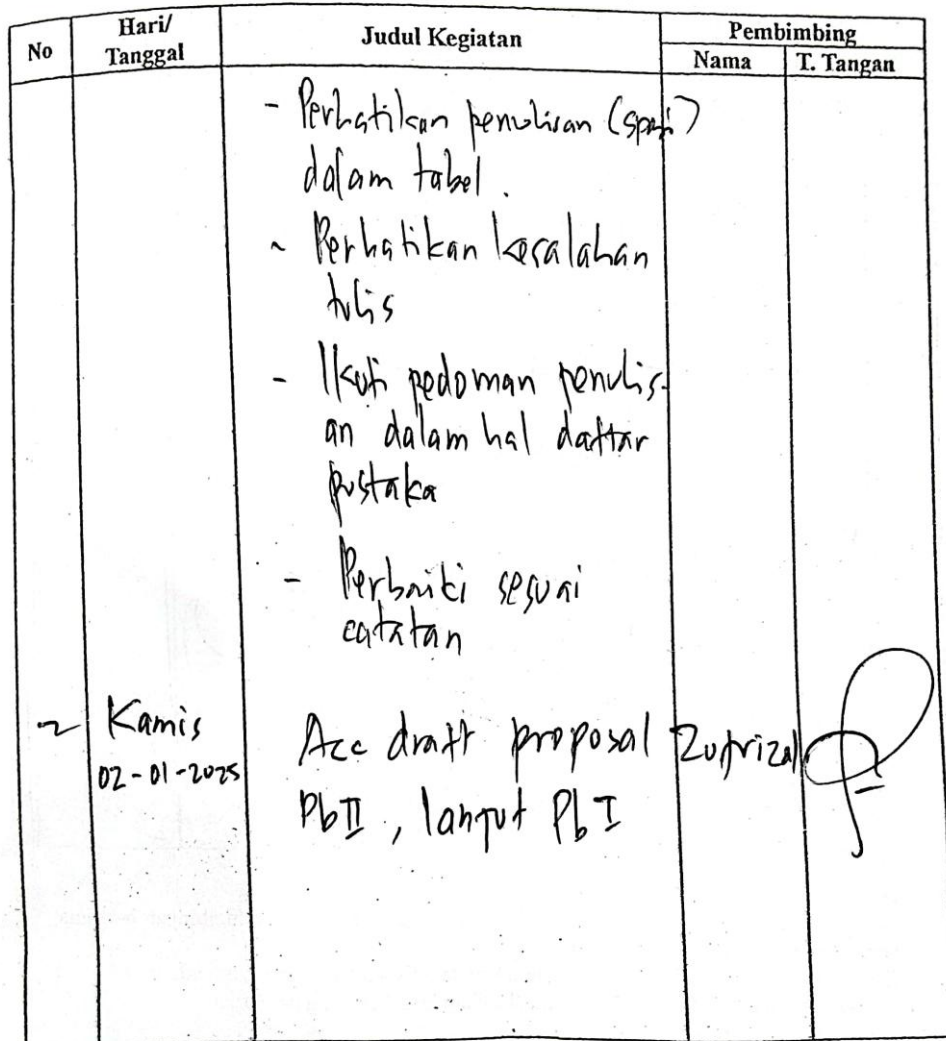 No
Hari/
Tanggal
Judul Kegiatan
Pembimbing
Nama
T. Tangan
- Perhatikan penulisan (spasi)
dalam tabel.
- Perhatikan kesalahan
tulis
- Ikuti pedoman penulis-
an dalam hal daftar
pustaka
- Perbaiki sesuai
catatan
Kamis
02-01-2025
Acc draft proposal
Pb II, lanjut Pb I
Zufrizal